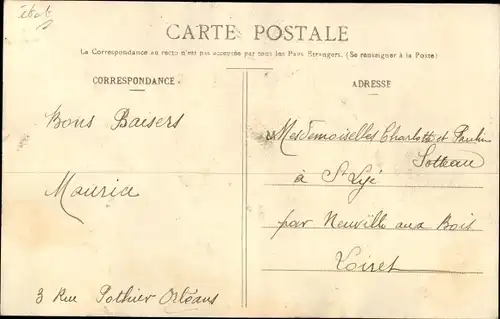 état
CARTE POSTALE
La Correspondance au recto n'est pas acceptée par tous les Pays Etrangers. (Se renseigner à la Poste)
CORRESPONDANCE
Bons Baisers
Mauria
3 Rue Pothier Orléans
ADRESSE
M Mesdemoiselles Charlotte et Paulin
Sotteau
à St Lyé
par Neuville aux Bois
Loiret